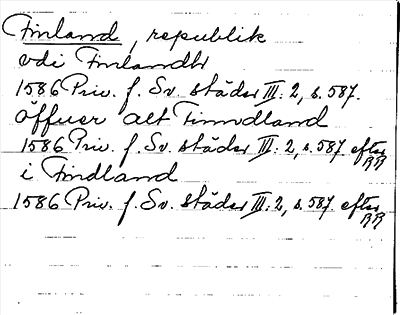 Finland, republik
vdi Finlandh
1586 Priv. f. Sv. städer III: 2, s. 587.
öffuer alt Finndland
1586 Priv. f. Sv. städer III: 2, s. 587 efter RR
i Findland
1586 Priv. f. Sv. städer III: 2, s. 587 efter RR